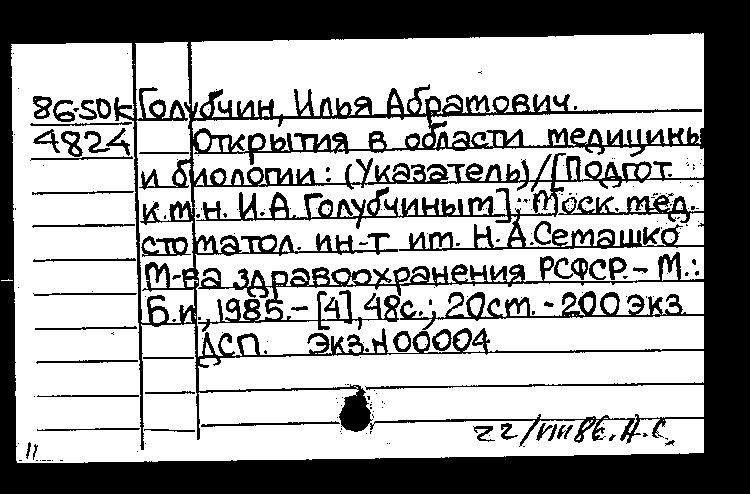 86-50К Голубчин, Илья Абрамович.
4824 Открытия в области медицины
и биологии: (Указатель)/[Подгот.
к.м.н. И.А. Голубчиным]; Моск. мед.
стоматол. ин-т им. Н.А.Семашко
М-ва здравоохранения РСФСР.- М.:
Б.и., 1985.- [4], 48с.; 20см. - 200 экз.
ДСП. Экз.N00004
22/VIII 86. А.С.
11